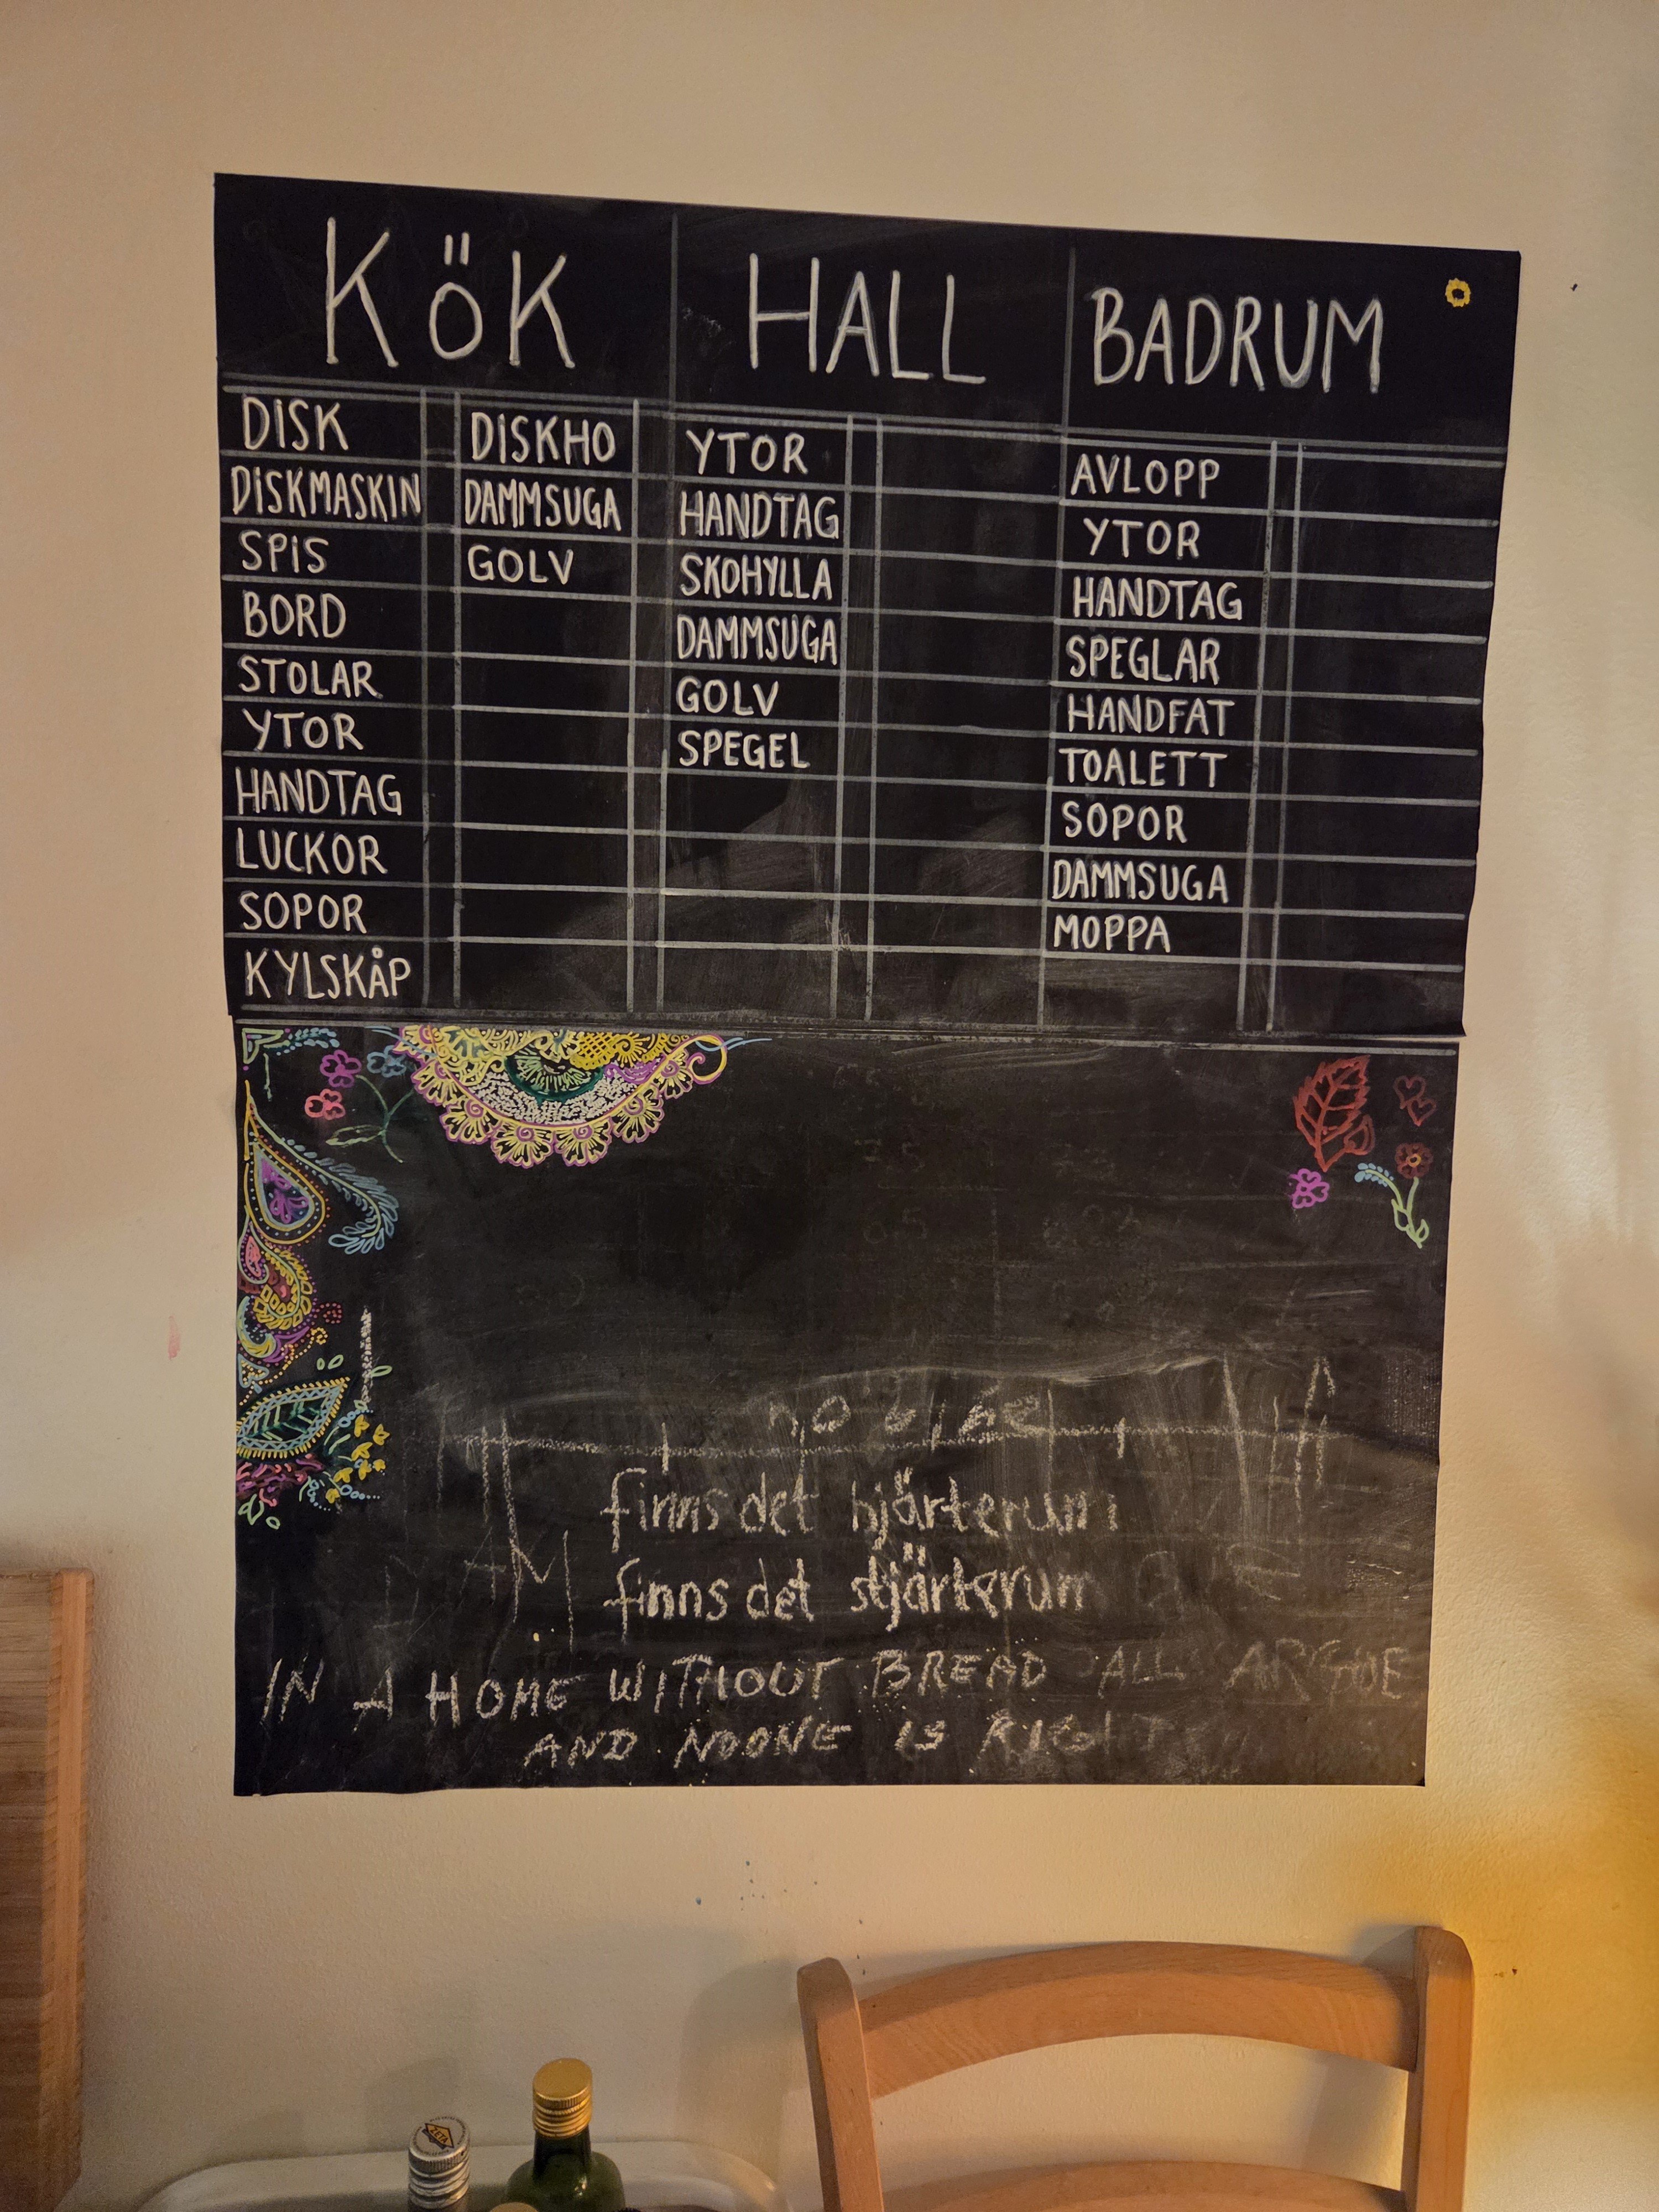 KÖK
DISK
DISKMASKIN
SPIS
BORD
STOLAR
YTOR
HANDTAG
LUCKOR
SOPOR
KYLSKÅP
DISKHO
DAMMSUGA
GOLV
HALL
YTOR
HANDTAG
SKOHYLLA
DAMMSUGA
GOLV
SPEGEL
BADRUM
AVLOPP
YTOR
HANDTAG
SPEGLAR
HANDFAT
TOALETT
SOPOR
DAMMSUGA
MOPPA
finns det hjärterum
finns det stjärterum
IN A HOME WITHOUT BREAD ALL ARGUE
AND NOONE IS RIGHT
ZETA